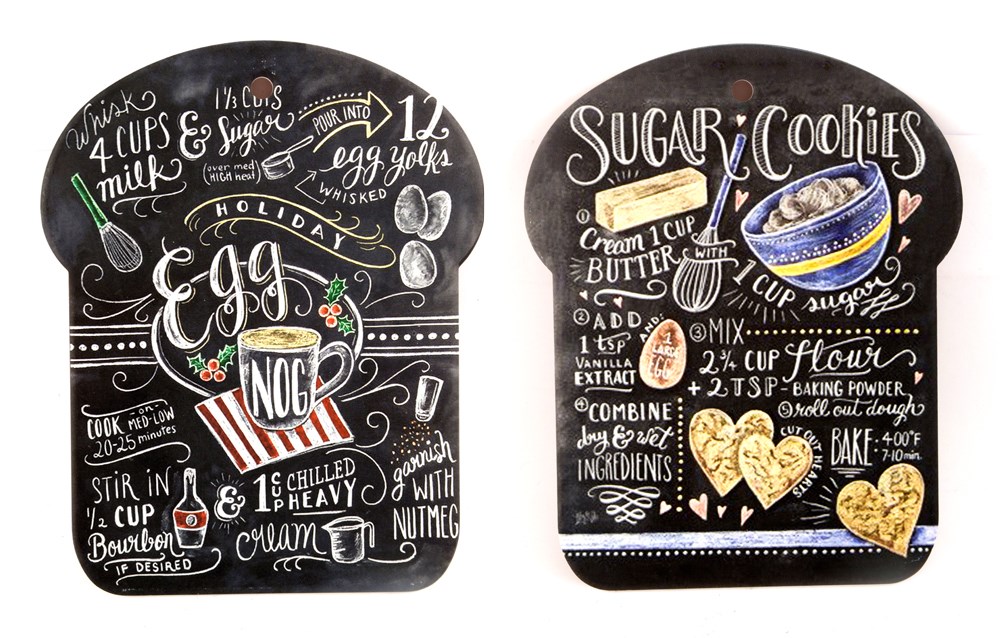 Whisk
4 CUPS
milk
&
1 1/3 CUPS
Sugar
(over med
HIGH heat)
POUR INTO
12
egg yolks
WHISKED
HOLIDAY
Egg
NOG
COOK -on-
MED-LOW
20-25 minutes
STIR IN
1/2 CUP
Bourbon
IF DESIRED
&
1 CUP CHILLED
HEAVY
cream
garnish
WITH
NUTMEG
SUGAR COOKIES
① Cream 1 CUP
BUTTER
WITH
1 CUP sugar
② ADD
1 tsp
VANILLA
EXTRACT
AND:
1
LARGE
EGG
③ MIX
2 3/4 CUP flour
+ 2 TSP - BAKING POWDER
④ COMBINE
dry & wet
INGREDIENTS
⑤ roll out dough
CUT OUT HEARTS
BAKE: 400°F
7-10 min.